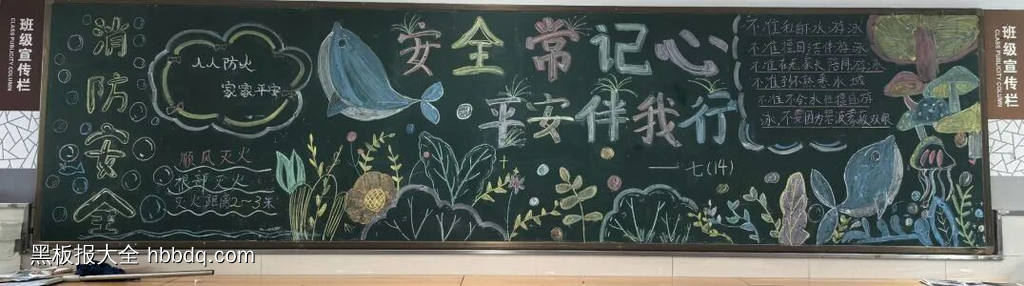 班级宣传栏
CLASS PUBLICITY COLUMN
消防安全
人人防火
家家平安
顺风灭火
根部灭火
灭火距离2~3米
安全常记心
平安伴我行
——七(14)
不准私自下水游泳
不准擅自结伴游泳
不准在无家长陪同游泳
不准到不熟悉水域
不准不会水性擅自游
泳,不
班级宣传栏
CLASS PUBLICITY COLUMN
黑板报大全 hbbdq.com